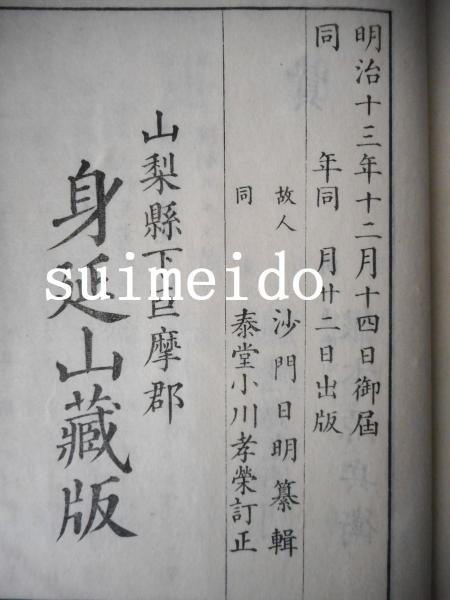 明治十三年十二月十四日御屆
同年同月廿二日出版
故人 沙門日明纂輯
同 泰堂小川孝榮訂正
山梨縣下巨摩郡
身延山藏版
suimeido